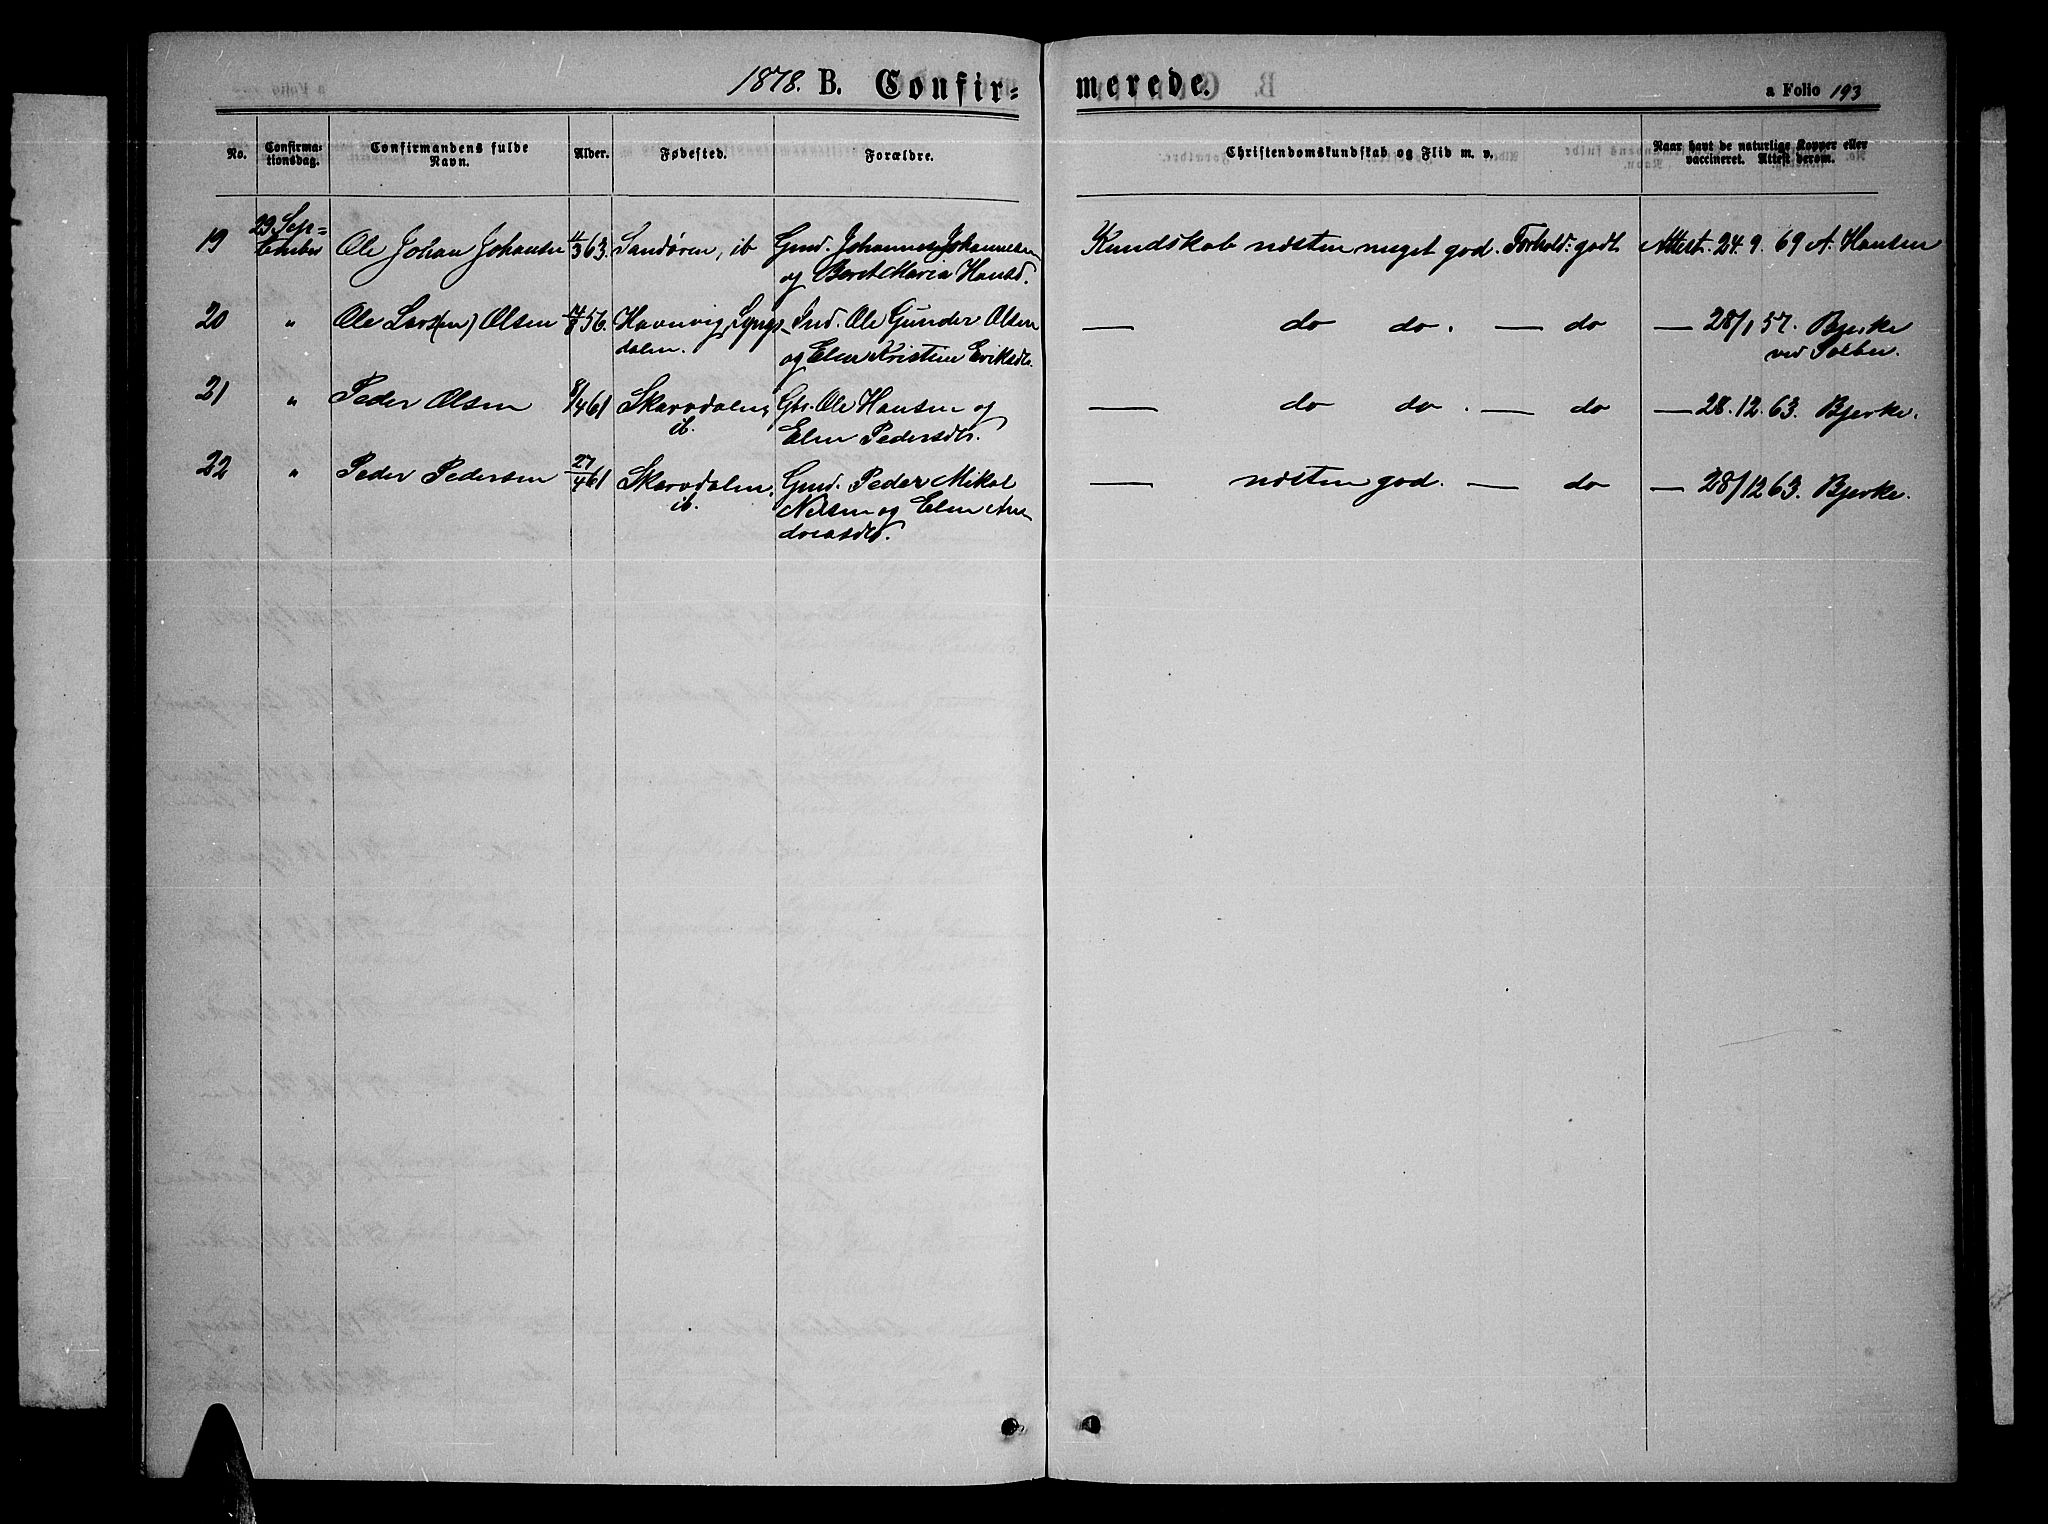 1878. B. Confir= merede. a Folio 193
No. Confirma-tionsdag. Confirmandens fulde Navn. Alder. Fødested. Forældre. Christendomskundskab og Flid m. v. Naar havt de naturlige Kopper eller vaccineret. Attest derom.
19 29 Sep= tember Ole Johan Johansen 11/3 63. Sandøren, ib Gmd. Johannes Johannesen Kundskab næsten meget god. Forhold: godt Attest. 24. 9. 69 A. Hansen
og Beret Maria Hansd.
20 " Ole Lars(en) Olsen 56. Havnvig, Lyngs- Ind. Ole Gunder Olsen — do do. — do — 28/1 57. Bjerke
dalen. og Elen Kristine Eriksdtr. ved Solbu.
21 " Peder Olsen 8/4 61 Skarvdalen, Gbr. Ole Hansen og — do do. — do — 28. 12. 63. Bjerke.
ib. Elen Pedersdtr.
22 " Peder Pedersen 27/4 61 Skarvdalen, Gmd. Peder Mikal — næsten god. — do — 28/12 63. Bjerke.
ib. Nilsen og Elen An
dreasdtr.